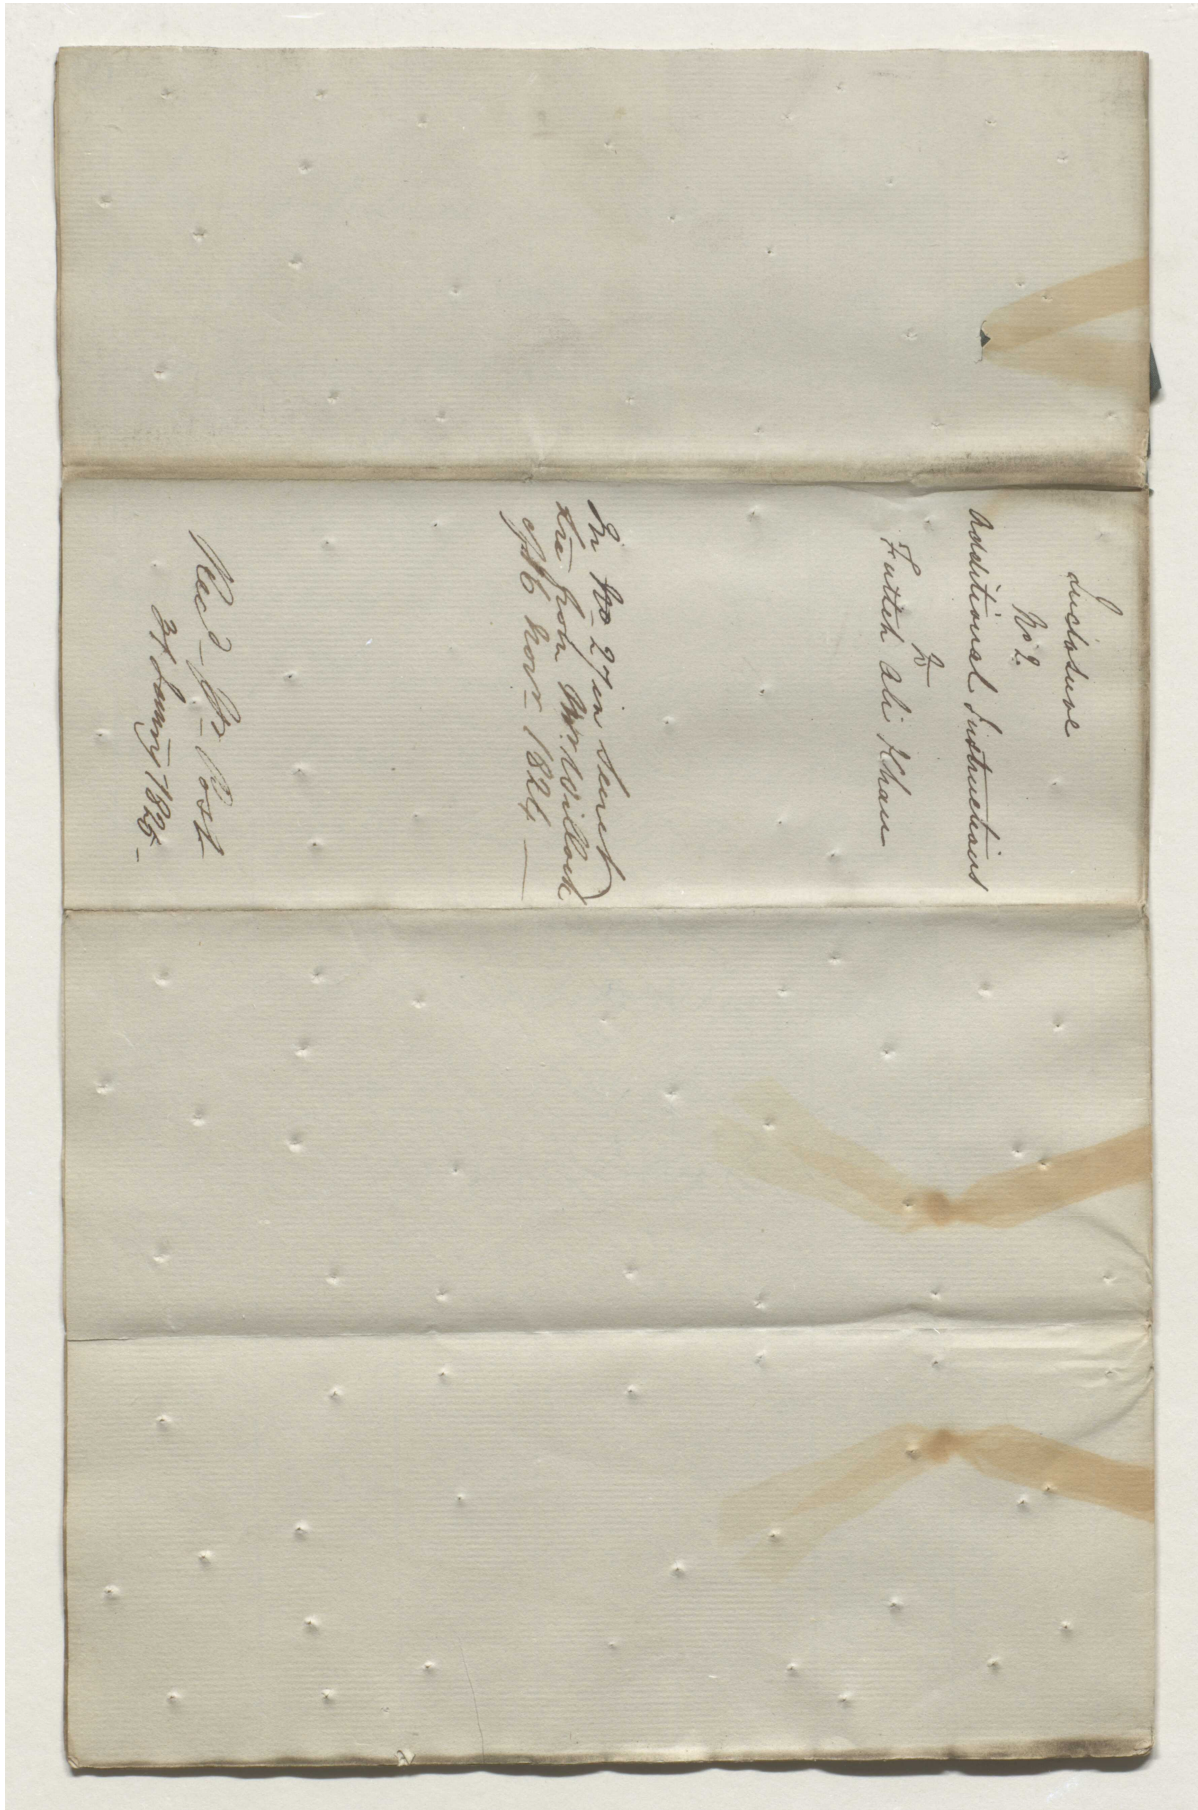 Inclosure
No. 2.
Additional Instructions
to
Futteh Ali Khan
In No 27 in Secret
from Mr. Willock
of 16 Novr. 1824 —
Recd. Pr. Post
31 January 1825 –